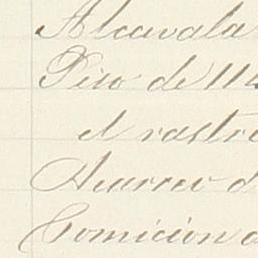 Alcavala
Piso de 114
el rastro
Acarreo d
Comicion d